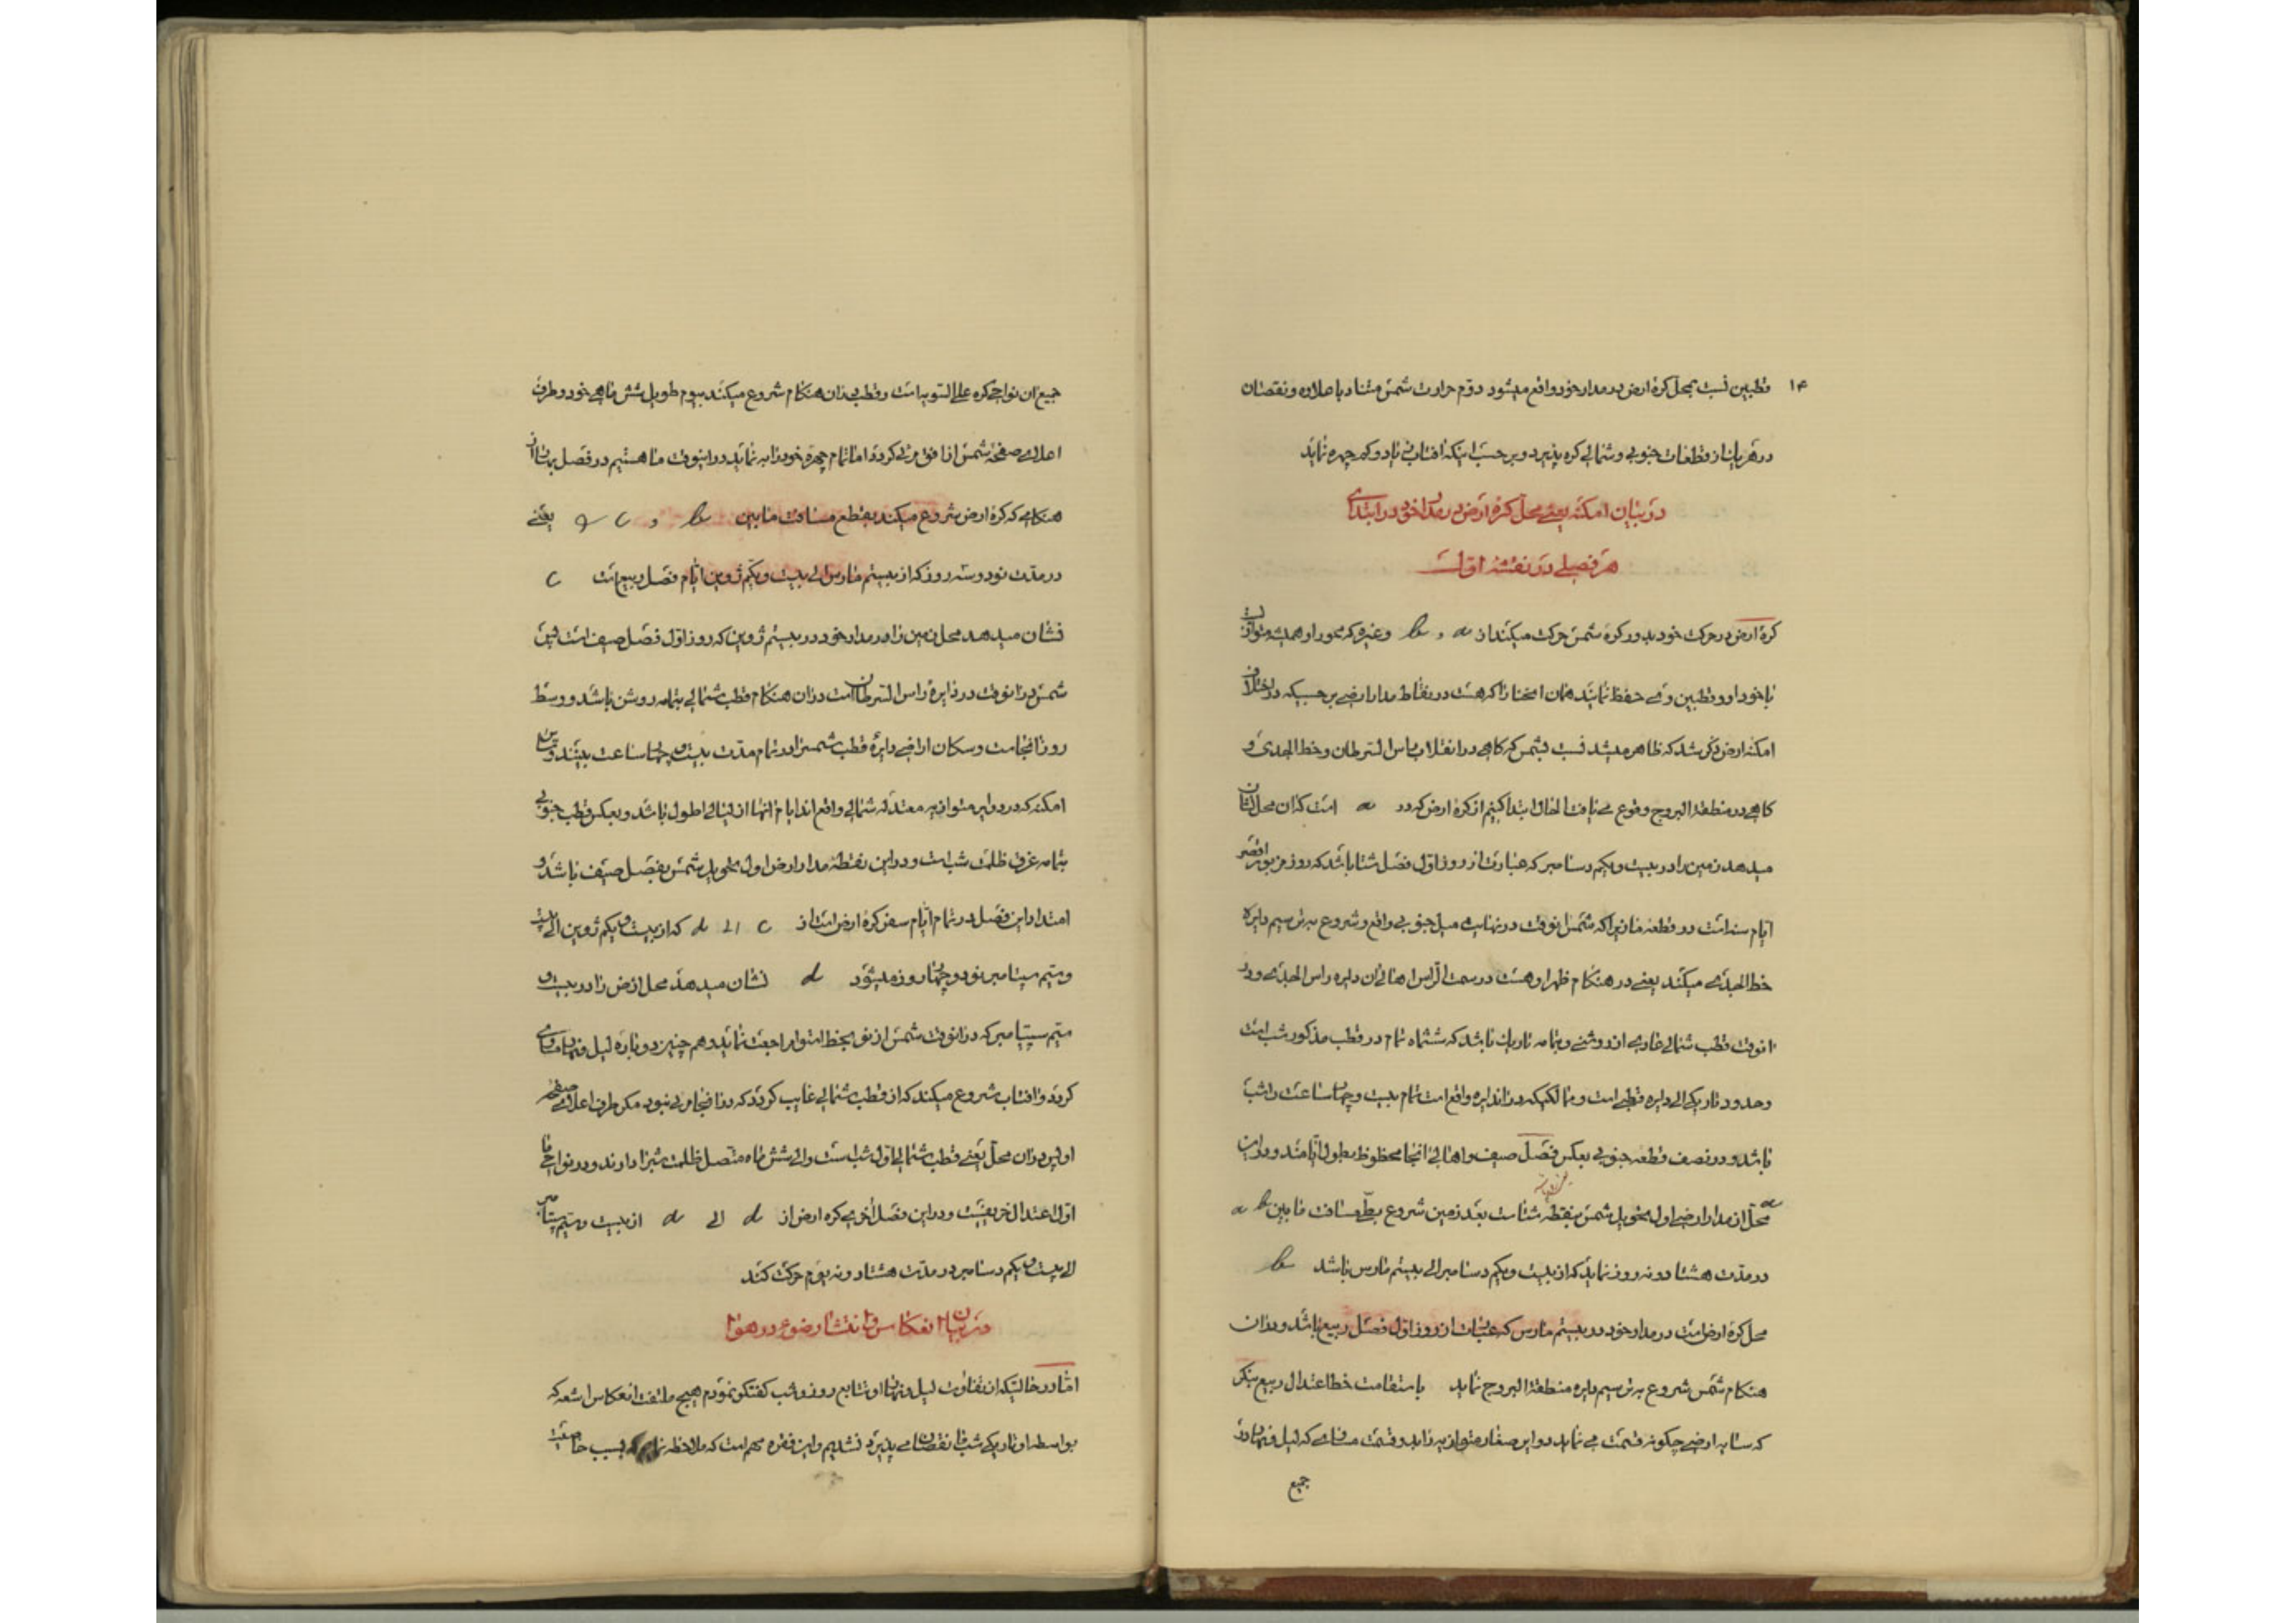 ۱۴
قطبین نسبت بمحل کرهٔ ارض در مدار خود واقع میشود دوّم حرارت شمس متناوباً علاوه و نقصان
در هر یک از قطعات جنوبی و شمالی کره پذیرد و بر حسب اینکه افتاب زیاد و کم چهره نماید
در بیان امکنه یعنی محل کرهٔ ارض در مدار خود در ابتدای
هر فصلی در نقشهٔ اول است
کرهٔ ارض در حرکت خود بدور کرهٔ شمس حرکت میکند از a و b وغیره که محور او همیشه متوازیست
با خود او و قطبین وی حفظ نمایند همان انحنا را که هست در نقاط مدار ارضی بر حسبکه در اختلاف
امکنهٔ ارض ذکر شد که ظاهر میشد نسبت بشمس که گاهی در انقلاب راس السرطان و خط الجدی و
گاهی در منطقة البروج وقوع می یافت الحال ابتدا کنیم از کرهٔ ارض که در a است که ان محل نشان
میدهد زمین را در بیست و یکم دسامبر که عبارت از روز اول فصل شتا باشد که روز مزبور اقصر
ایام سنه است در قطعه ما زیرا که شمس انوقت در نهایت میل جنوبی واقع و شروع به ترسیم دایرهٔ
خط الجدی میکند یعنی در هنکام ظهر او هست در سمت الرأس اهالی ان دایره راس الجدی و در
انوقت قطب شمالی عاری از روشنی و بتمامه تاریک باشد که ششماه تمام در قطب مذکور شب است
و حدود تاریکی الی دایره قطبی است و ممالکیکه در اندایره واقع است تمام بیست و چهار ساعت را شب
باشد و در نصف قطعه جنوبی بعکس فصل صیف و اهالی انجا محظوظ بطول ایامند و در این
محل از مدار ارضی اول تحویل شمس بنقطه شتاست بعد زمین شروع بطی مسافت مابین a b
در مدت هشتاد و نه روز نماید که از بیست و یکم دسامبر الی بیستم مارس باشد b
محل کرهٔ ارض است در مدار خود در بیستم مارس که عبارت از روز اول فصل ربیع باشد و در ان
هنکام شمس شروع به ترسیم دایره منطقة البروج نماید باستقامت خط اعتدال ربیع بنکر
که سایه ارضی چکونه قسمت می نماید دوایر صغار متوازیه را بدو قسمت مساوی که لیل و نهار در
جمیع
جمیع ان نواحی کره علی السویه است و قطب در ان هنکام شروع میکند بیوم طویل شش ماهی خود و طرف
اعلای صفحه شمس از افق مرئی کردد اما تمام چهره خود را به نماید در اینوقت ما هستیم در فصل بهار ان
هنکامی که کرهٔ ارض شروع میکند بقطع مسافت مابین b و c یعنی
در مدت نود و سه روز که از بیستم مارس الی بیست و یکم ژوین ایام فصل ربیع است c
نشان میدهد محل زمین را در مدار خود در بیستم ژوین که روز اول فصل صیف است
شمس در انوقت در دایرهٔ راس السرطان است در ان هنکام قطب شمالی بتمامه روشن باشد و وسط
روز انجاست و سکان اراضی دایرهٔ قطب شمس را در تمام مدت بیست و چهار ساعت بینند و
امکنه که در دوایر متوازیه معتدله شمالی واقع اند ایام انها از لیالی اطول باشد و بعکس قطب جنوبی
بتمامه غرق ظلمت شب است و در این نقطه مدار ارض اول تحویل شمس بفصل صیف باشد و
امتداد این فصل در تمام ایام سفر کرهٔ ارض است از c الی d که از بیست و یکم ژوین الی بیست
و سیم سپتامبر نود و چهار روز میشود d نشان میدهد محل ارض را در بیست و
سیم سپتامبر که در انوقت شمس از نو بخط استوا مراجعت نماید و هم چنین دوباره لیل و نهار مساوی
کردد و افتاب شروع میکند که از قطب شمالی غایب کردد که در انجا مرئی نبود مکر طرف اعلای صفحه
او این در ان محل یعنی قطب شمالی اول شب است و الی شش ماه متصل ظلمت شب را دارند و در نواحی ما
اول اعتدال خریفست و در این فصل اخری کره ارض از d الی a از بیست و سیم سپتامبر
الی بیست و یکم دسامبر در مدت هشتاد و نه یوم حرکت کند
در بیان انعکاس و انتشار ضوء در هوا
اما در حالتیکه از تفاوت لیل و نهار و تتابع روز و شب کفتکو نمودم هیچ ملتفت انعکاس اشعه که
بواسطه او تاریکی شب نقصان می پذیرد نشدیم و این فقره مهم است که ملاحظه نمائیم که بسبب خاصیت